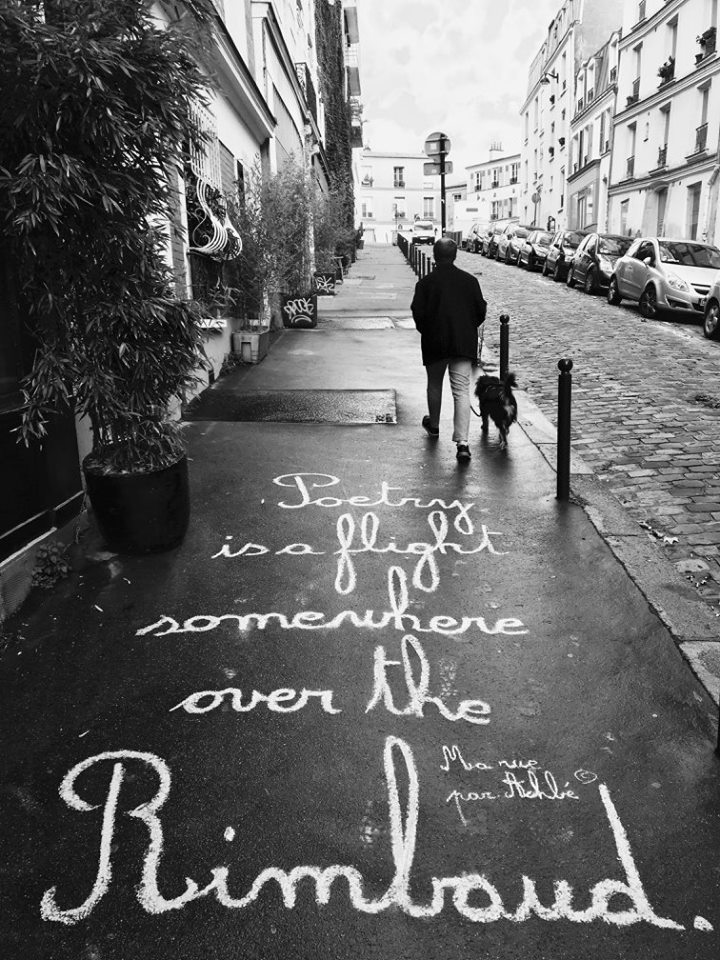 Poetry
is a flight
somewhere
over the
Rimbaud.
Ma rue
par Achbé ©